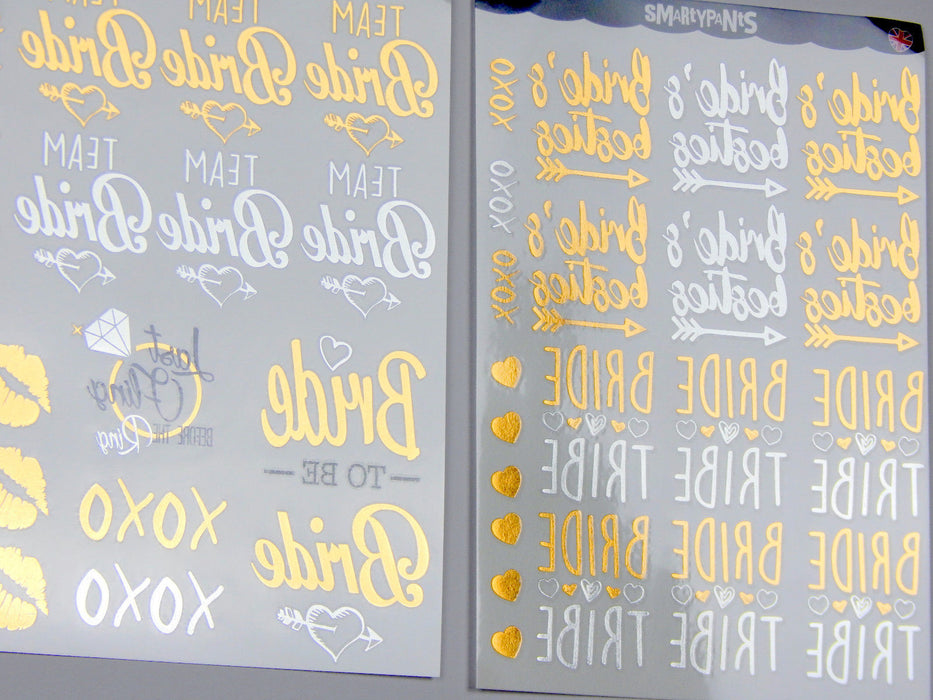 TEAM TEAM TEAM
Bride Bride Bride
TEAM TEAM TEAM
Bride Bride Bride
Last
Fling
BEFORE THE Ring
Bride
TO BE
XOXO
Bride
XOXO
SMARTYPANTS
XOXO
Bride's Bride's Bride's
besties besties besties
XOXO
Bride's Bride's Bride's
besties besties besties
XOXO
BRIDE BRIDE BRIDE
TRIBE TRIBE TRIBE
BRIDE BRIDE BRIDE
TRIBE TRIBE TRIBE